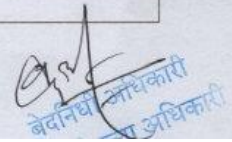 बेदनिधी अधिकारी
अधिकारी